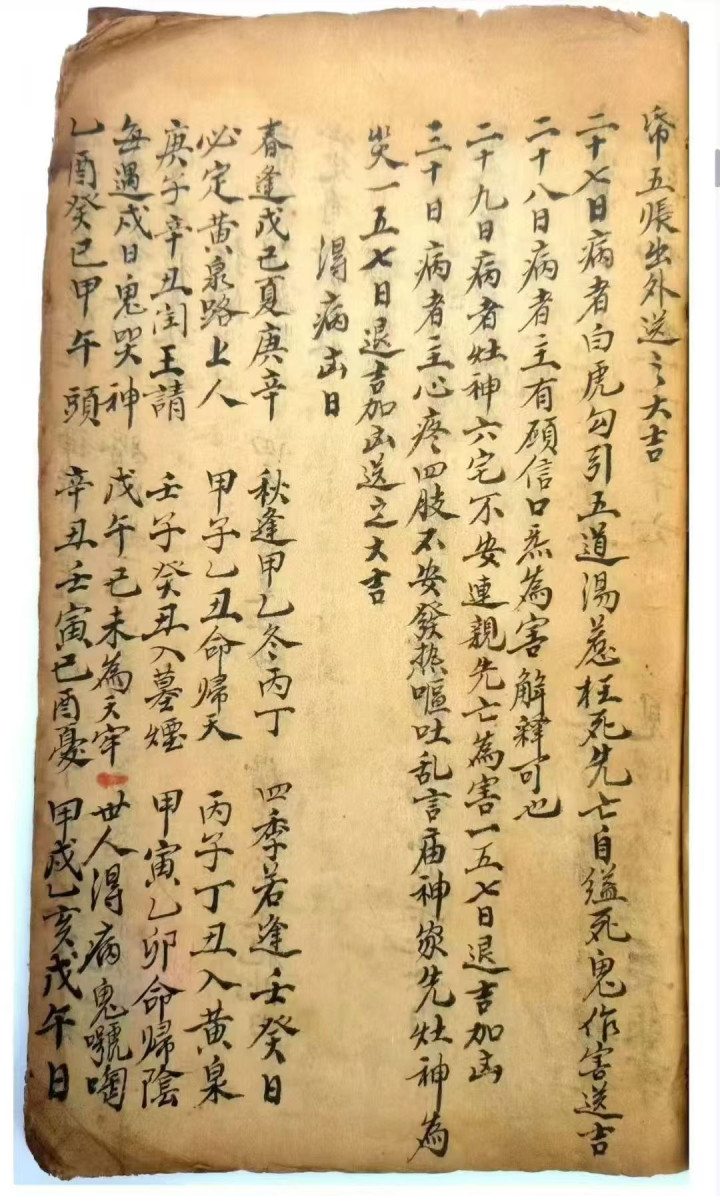 帋五張出外送之大吉
二十七日病者白虎勾引五道湯惹枉死先亡自縊死鬼作害送吉
二十八日病者主有願信口愿為害解釋可也
二十九日病者灶神六宅不安連親先亡為害一五七日退吉加凶
三十日病者主心疼四肢不安發热嘔吐乱言庙神家先灶神為
災一五七日退吉加凶送之大吉
得病凶日
春逢戊己夏庚辛 秋逢甲乙冬丙丁 四季若逢壬癸日
必定黄泉路上人 甲子乙丑命歸天 丙子丁丑入黄泉
庚子辛丑閆王請 壬子癸丑入墓堙 甲寅乙卯命歸陰
每遇戍日鬼哭神 戊午己未為文牢 世人得病鬼號啕
乙酉癸巳甲午頭 辛丑壬寅己酉憂 甲戍乙亥戊午日